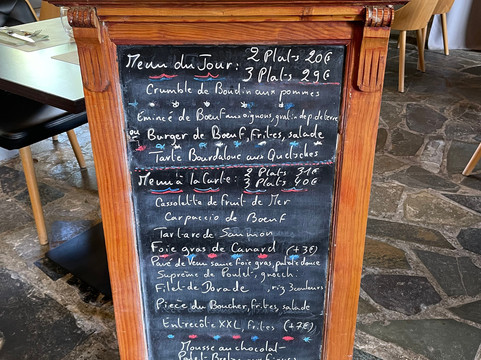 Menu du Jour : 2 Plats 20€
3 Plats 29€
Crumble de Boudin aux pommes
Emincé de Bœuf aux oignons, gratin de p. de terre
ou Burger de Bœuf, frites, salade
Tarte Bourdaloue aux Quetsches
Menu à la Carte : 2 Plats 31€
3 Plats 40€
Cassolette de fruit de Mer
Carpaccio de Bœuf
Tartare de Saumon
Foie gras de Canard (+3€)
Pavé de veau sauce foie gras, patate douce
Suprême de Poulet, gnocchi
Filet de Dorade, riz 3 couleurs
Pièce du Boucher, frites, salade
Entrecôte XXL, frites (+7€)
Mousse au chocolat